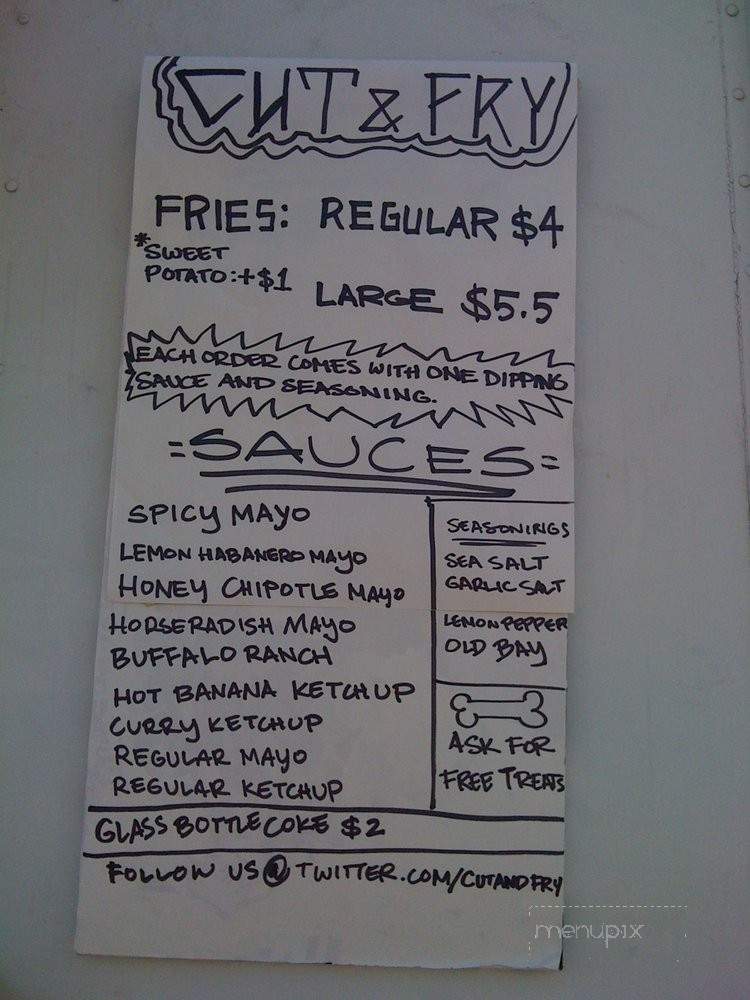 CUT & FRY
FRIES: REGULAR $4
*SWEET
POTATO:+$1
LARGE $5.5
EACH ORDER COMES WITH ONE DIPPING
SAUCE AND SEASONING.
=SAUCES=
SPICY MAYO
LEMON HABANERO MAYO
HONEY CHIPOTLE MAYO
HORSERADISH MAYO
BUFFALO RANCH
HOT BANANA KETCHUP
CURRY KETCHUP
REGULAR MAYO
REGULAR KETCHUP
SEASONINGS
SEA SALT
GARLIC SALT
LEMON PEPPER
OLD BAY
ASK FOR
FREE TREATS
GLASS BOTTLE COKE $2
FOLLOW US @ TWITTER.COM/CUTANDFRY
menupix